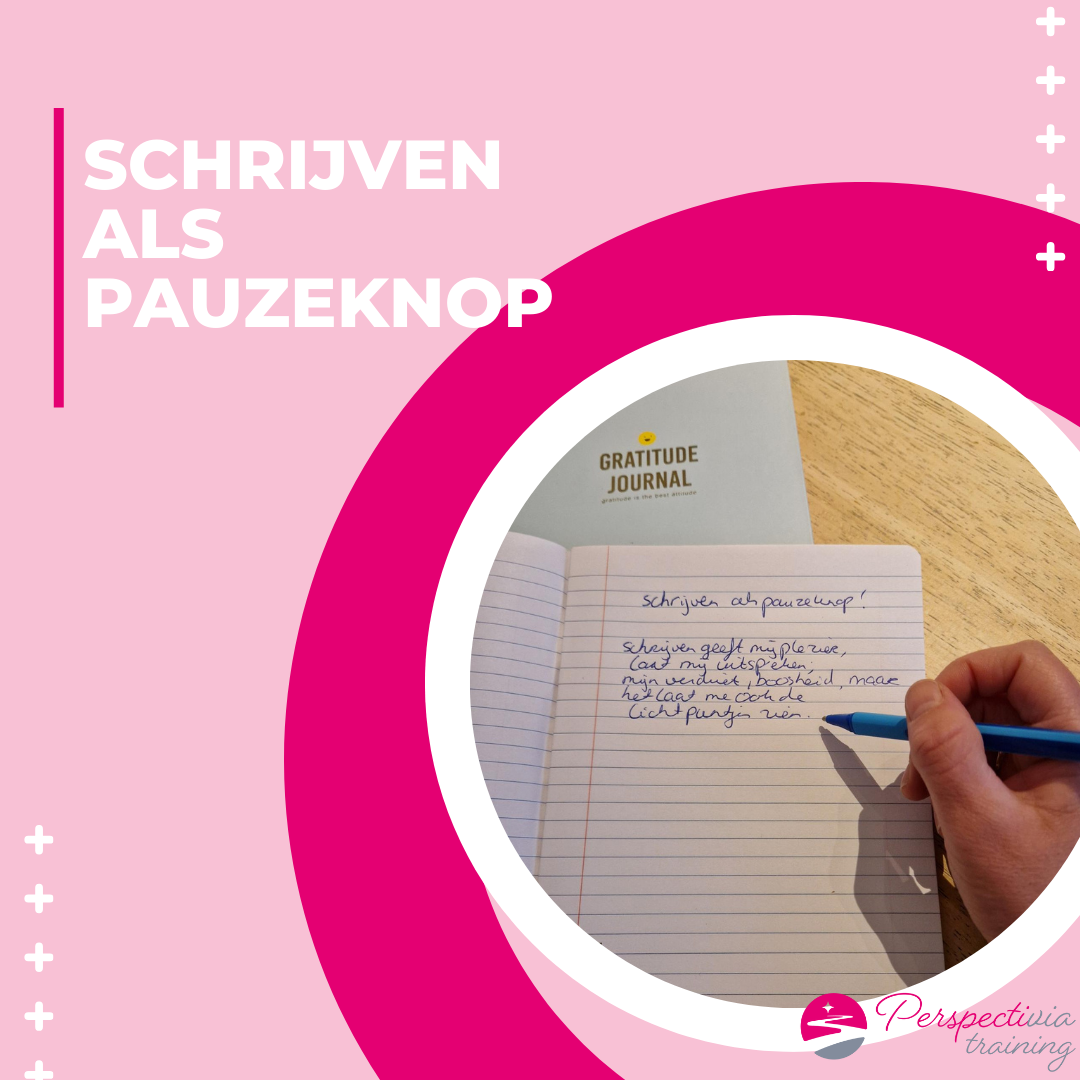 SCHRIJVEN
ALS
PAUZEKNOP
GRATITUDE
JOURNAL
gratitude is the best attitude
schrijven als pauzeknop!
schrijven geeft mij plezier,
laat mij uitspreken;
mijn verdriet, boosheid, maar
het laat me ook de
lichtpuntjes zien.
Perspectivia
training